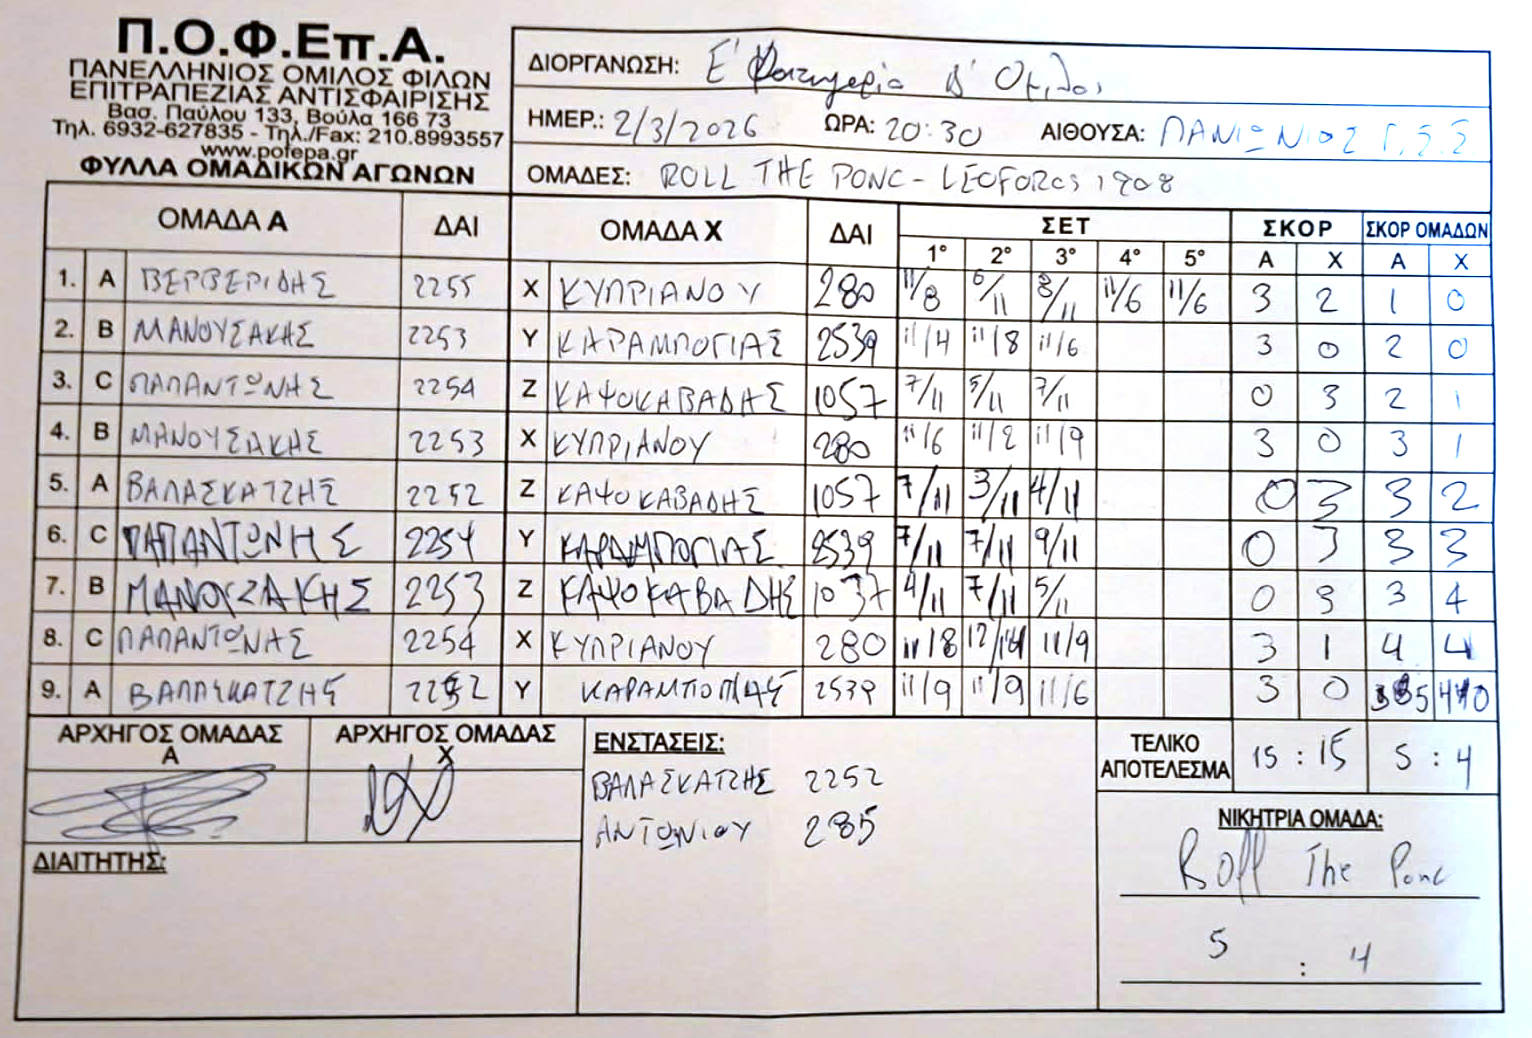 Π.Ο.Φ.Επ.Α.
ΠΑΝΕΛΛΗΝΙΟΣ ΟΜΙΛΟΣ ΦΙΛΩΝ
ΕΠΙΤΡΑΠΕΖΙΑΣ ΑΝΤΙΣΦΑΙΡΙΣΗΣ
Βασ. Παύλου 133, Βούλα 166 73
Τηλ. 6932-627835 - Τηλ./Fax: 210.8993557
www.pofepa.gr
ΦΥΛΛΑ ΟΜΑΔΙΚΩΝ ΑΓΩΝΩΝ
ΔΙΟΡΓΑΝΩΣΗ: Ε' Κατηγορία Δ' Όμιλος
ΗΜΕΡ.: 2/3/2026 ΩΡΑ: 20:30 ΑΙΘΟΥΣΑ: ΠΑΝΙΩΝΙΟΣ Γ.Σ.Σ
ΟΜΑΔΕΣ: ROLL THE PONG - LEOFOROS 1908
ΟΜΑΔΑ Α ΔΑΙ ΟΜΑΔΑ Χ ΔΑΙ ΣΕΤ ΣΚΟΡ ΣΚΟΡ ΟΜΑΔΩΝ
1° 2° 3° 4° 5° Α Χ Α Χ
1. Α ΒΕΡΒΕΡΙΔΗΣ 2255 Χ ΚΥΠΡΙΑΝΟΥ 280 11/8 6/11 8/11 11/6 11/6 3 2 1 0
2. Β ΜΑΝΟΥΣΑΚΗΣ 2253 Υ ΚΑΡΑΜΠΟΓΙΑΣ 2539 11/4 11/8 11/6 3 0 2 0
3. C ΠΑΠΑΝΤΩΝΗΣ 2254 Ζ ΚΑΨΟΚΑΒΑΔΗΣ 1057 7/11 5/11 7/11 0 3 2 1
4. Β ΜΑΝΟΥΣΑΚΗΣ 2253 Χ ΚΥΠΡΙΑΝΟΥ 280 11/6 11/2 11/9 3 0 3 1
5. Α ΒΑΛΑΣΚΑΤΖΗΣ 2252 Ζ ΚΑΨΟΚΑΒΑΔΗΣ 1057 7/11 3/11 4/11 0 3 3 2
6. C ΠΑΠΑΝΤΩΝΗΣ 2254 Υ ΚΑΡΑΜΠΟΓΙΑΣ 2539 7/11 7/11 9/11 0 3 3 3
7. Β ΜΑΝΟΥΣΑΚΗΣ 2253 Ζ ΚΑΨΟΚΑΒΑΔΗΣ 1057 4/11 7/11 5/11 0 3 3 4
8. C ΠΑΠΑΝΤΩΝΑΣ 2254 Χ ΚΥΠΡΙΑΝΟΥ 280 11/8 12/14 11/9 3 1 4 4
9. Α ΒΑΛΑΣΚΑΤΖΗΣ 2252 Υ ΚΑΡΑΜΠΟΓΙΑΣ 2539 11/9 11/9 11/6 3 0
ΑΡΧΗΓΟΣ ΟΜΑΔΑΣ Α ΑΡΧΗΓΟΣ ΟΜΑΔΑΣ Χ ΕΝΣΤΑΣΕΙΣ: ΤΕΛΙΚΟ ΑΠΟΤΕΛΕΣΜΑ 15 : 15 5 : 4
ΒΑΛΑΣΚΑΤΖΗΣ 2252
ΑΝΤΩΝΙΟΥ 285
ΔΙΑΙΤΗΤΗΣ:
ΝΙΚΗΤΡΙΑ ΟΜΑΔΑ:
Roll The Pong
5 : 4